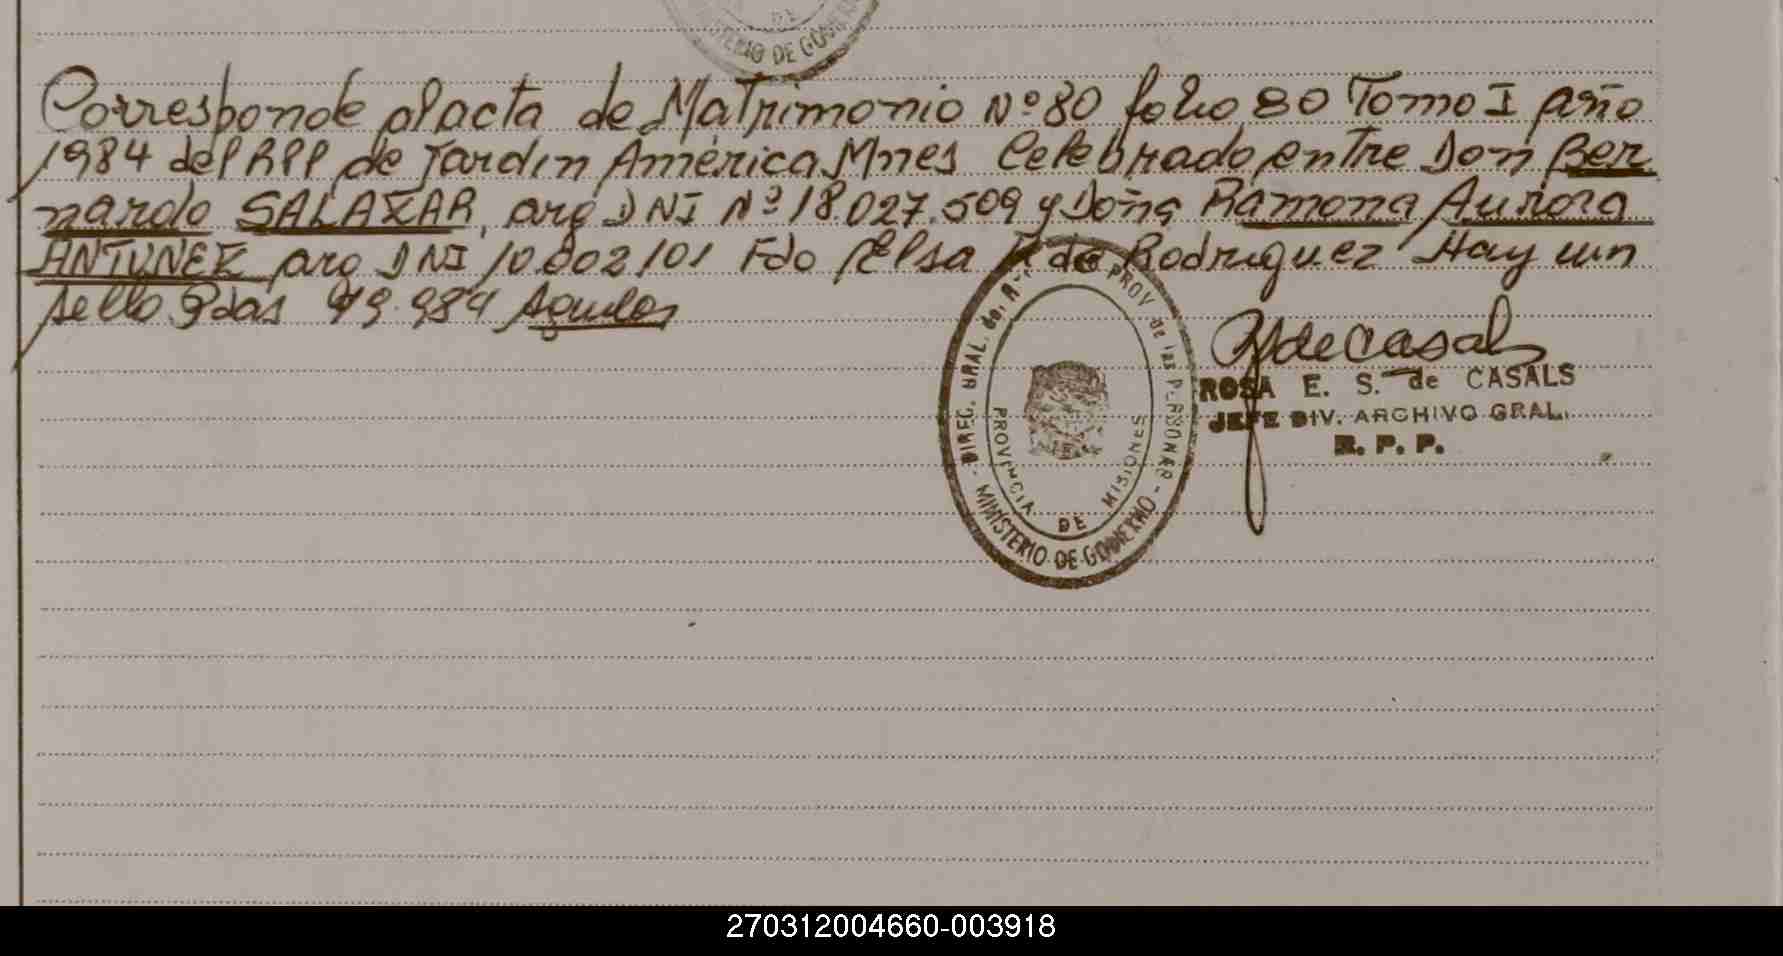 DE
MINISTERIO DE GOBIERNO
Corresponde al acta de Matrimonio Nº 80 folio 80 Tomo I año
1984 del RPP de Jardín América Mnes Celebrado entre Don Ber
nardo SALAZAR, arg DNI Nº 18.027.509 y Doña Ramona Aurora
ANTUNEZ arg DNI 10.802101 Fdo Elsa de Rodriguez Hay un
sello Pdas 984
DIREC. GRAL. del R PROV de las PERSONAS
PROVINCIA DE MISIONES
- MINISTERIO DE GOBIERNO -
de Casals
ROSA E. S. de CASALS
JEFE DIV. ARCHIVO GRAL.
R. P. P.
270312004660-003918